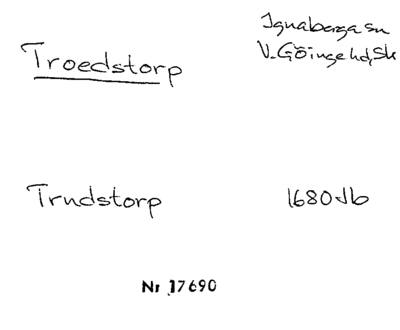 Troedstorp
Ignaberga sn
V. Göinge hd, Sk
Trudstorp
1680 Jb
Nr 17690